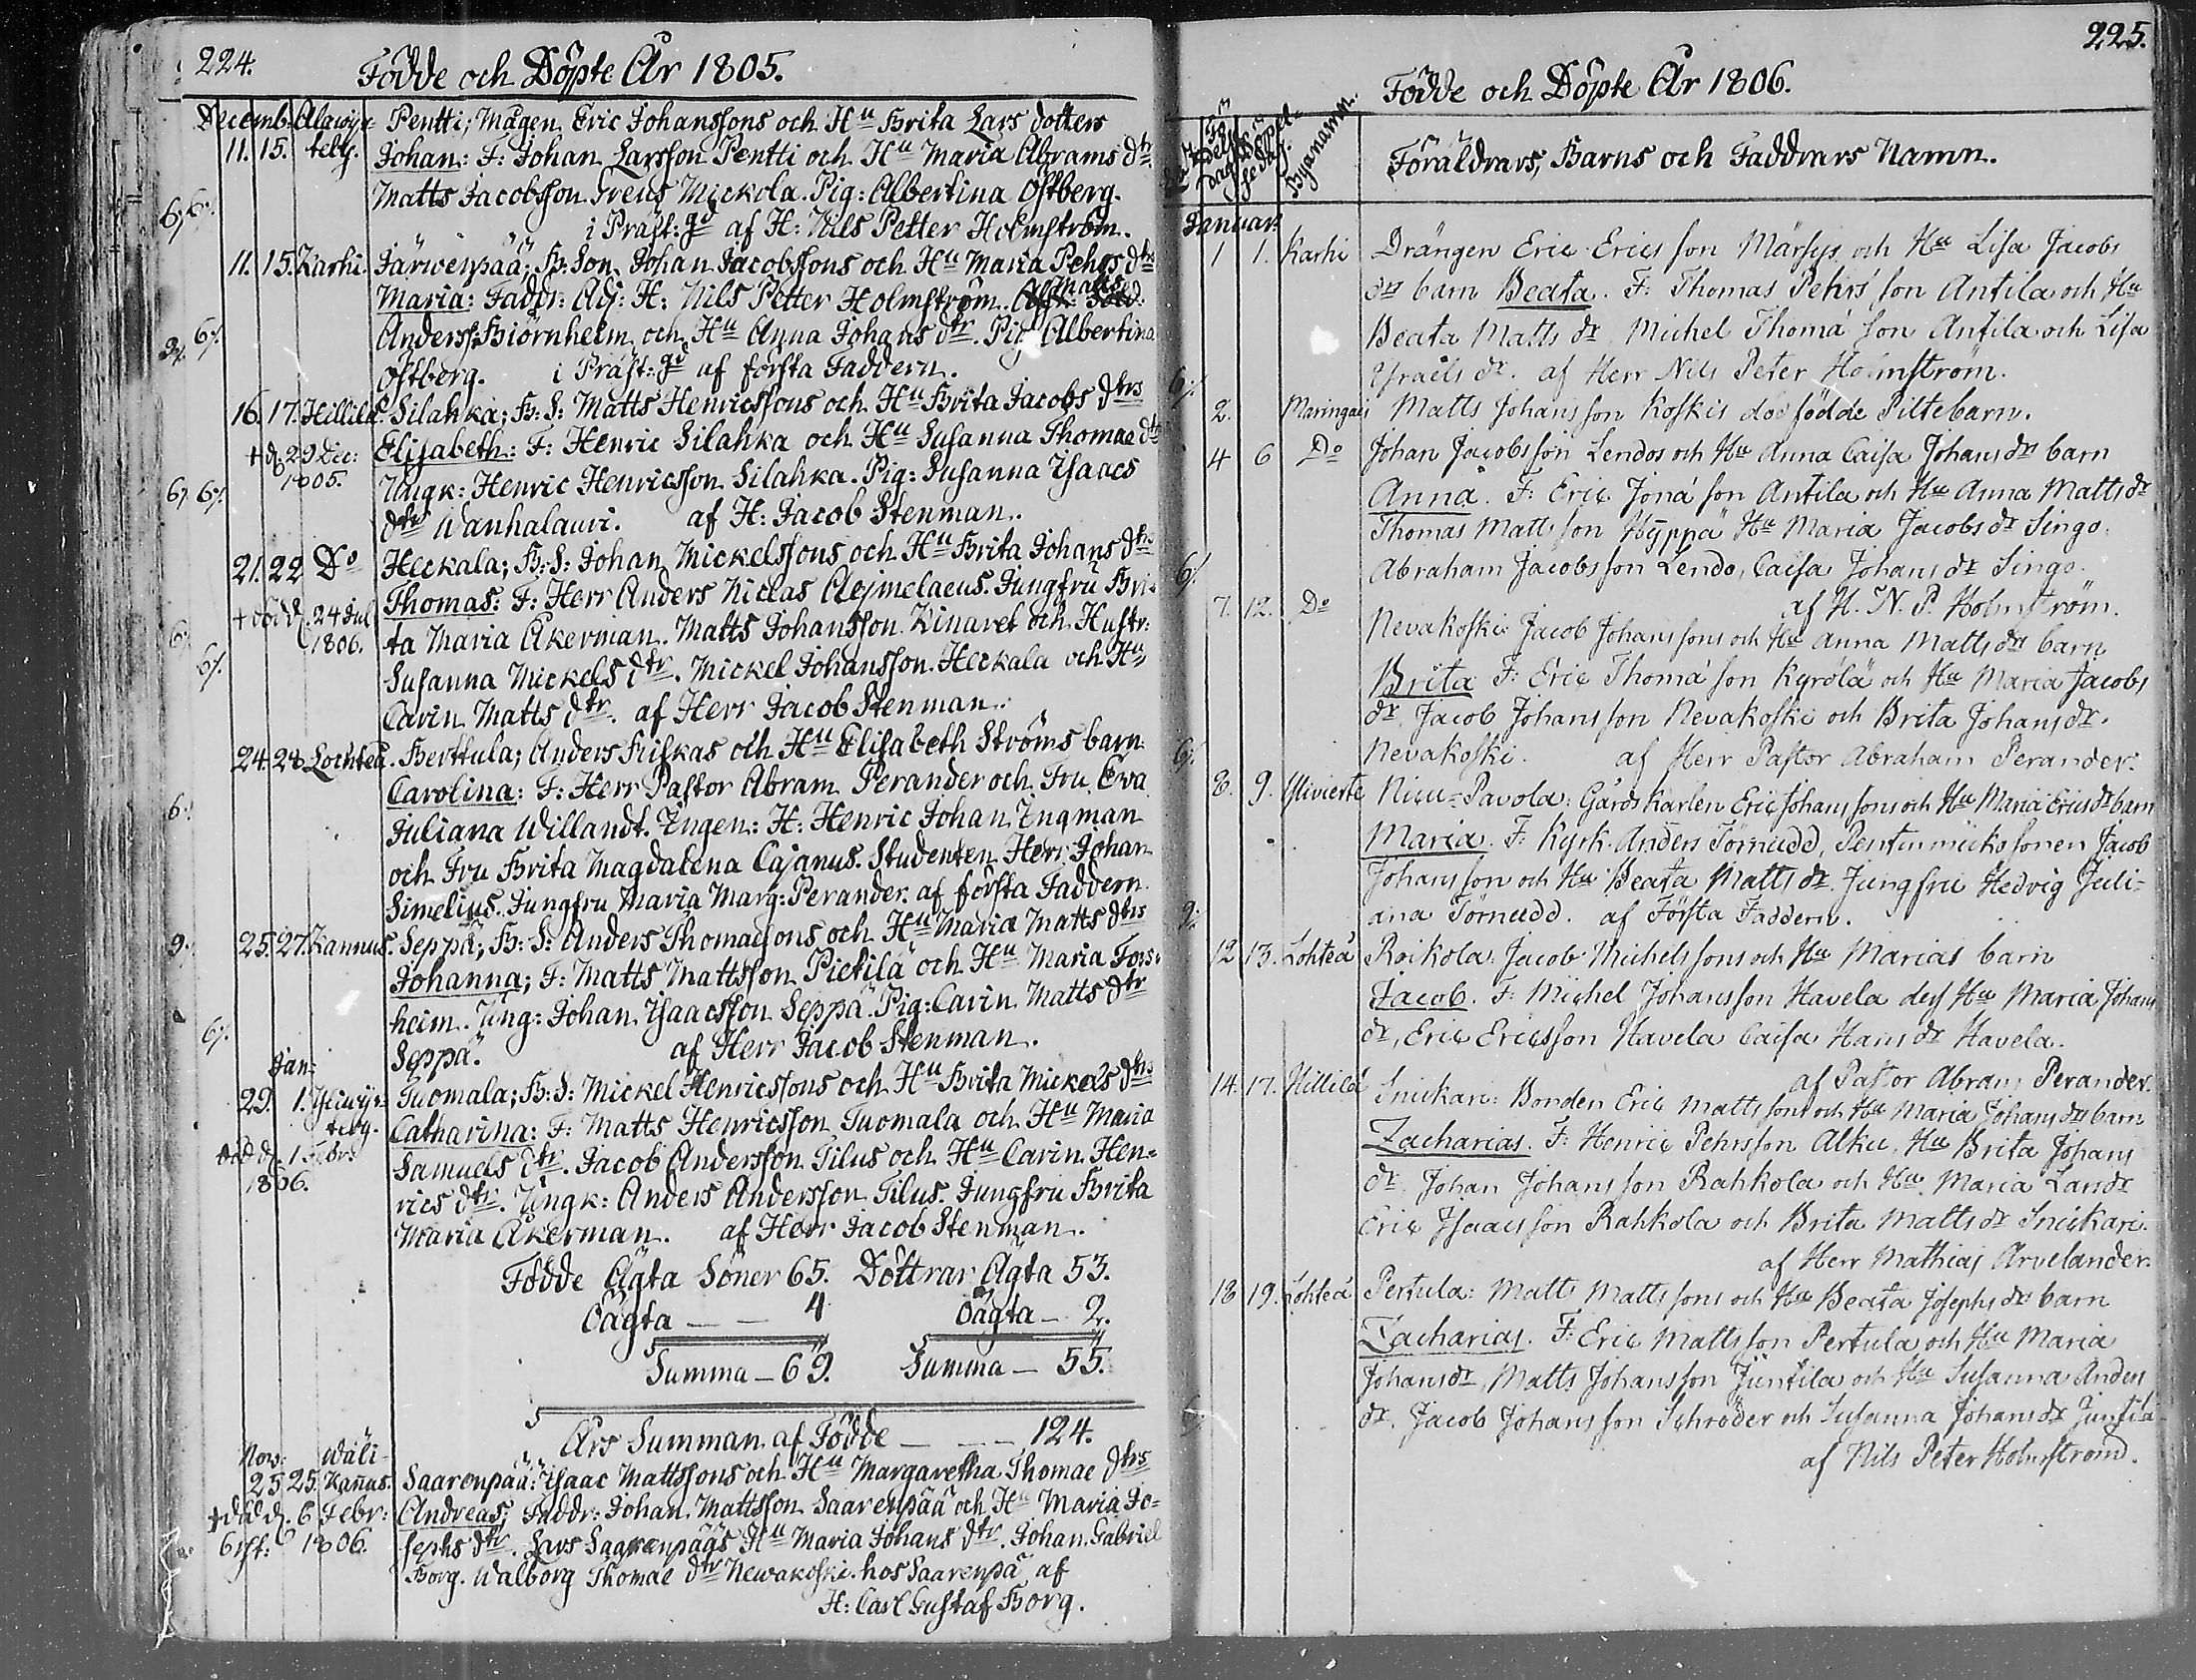 224.
Födde och Döpte År 1805.
Decemb. Alawije- Pentti; Mågen Eric Johanssons och Hu Brita Lars dotters
11. 15. teby. Johan: F: Johan Larsson Pentti och Hu Maria Abrams dtr
Matts Jacobsson Ireus Mickola. Pig: Albertina Östberg.
i Präst:gd af H: Nils Petter Holmström.
11. 15. Karhi. Järwenpää; B: Son Johan Jacobssons och Hu Maria Pehrs dtrs
Maria: Faddr: Adj: H: Nils Petter Holmström.
Anders Biörnhelm och Hu Anna Johans dtr. Pig Albertina
Östberg. i Präst:gd af första Faddern.
16. 17. Hillilä. Silahka; B: S: Matts Henricssons och Hu Brita Jacobs dtrs
† d. 29 Dec: Elisabeth: F: Henric Silahka och Hu Susanna Thomae dtr
1805. Ungk: Henric Henricsson Silahka. Pig: Susanna Isaacs
dtr Wanhalauri. af H: Jacob Stenman.
21. 22 Do Heckala; B: S: Johan Mickelssons och Hu Brita Johans dtrs
† död d. 24 Jul Thomas: F: Herr Anders Niclas Alejmelaeus. Jungfru Bri-
1806. ta Maria Åkerman. Matts Johansson Kinaret och Hustr:
Susanna Mickels dtr. Mickel Johansson Heckala och Hu
Carin Matts dtr. af Herr Jacob Stenman.
24. 28 Lochteå. Berttula; Anders Friskas och Hu Elisabeth Ströms barn
Carolina: F: Herr Pastor Abram Perander och Fru Ewa
Juliana Willandt. Ingen: H: Henric Johan Ingman
och Fru Brita Magdalena Cajanus. Studenten Herr Johan
Simelius. Jungfru Maria Marg: Perander. af första Faddern.
25. 27. Kannus. Seppä; B: S: Anders Thomaesons och Hu Maria Matts dtrs
Johanna; F: Matts Mattsson Pietilä och Hu Maria Fors-
heim. Ung: Johan Isaacsson Seppä. Pig: Carin Matts dtr
Seppä. af Herr Jacob Stenman.
Jan:
29. 1. Yliwije- Tuomala; B: S: Mickel Henricssons och Hu Brita Mickels dtrs
teby. Catharina: F: Matts Henricsson Tuomala och Hu Maria
död d. 1 Febr: Samuels dtr. Jacob Andersson Tilus och Hu Carin Hen-
1806. rics dtr. Ungk: Anders Andersson Tilus. Jungfru Brita
Maria Åkerman. af Herr Jacob Stenman.
Födde Ägta Söner 65. Döttrar Ägta 53.
Oägta — — 4 Oägta — 2.
Summa — 69. Summa — 55.
Års Summan af Födde — — — 124.
Nov: Wäli-
25 25. Kañus. Saarenpää: Isaac Mattssons och Hu Margaretha Thomae dtrs
† död d. 6 Febr: Andreas; Faddr: Johan Mattsson Saarenpää och Hu Maria Jo-
1806. sephs dtr. Lars Saarenpääs Hu Maria Johans dtr. Johan Gabriel
Borg. Walborg Thomae dtr Newakoski. hos Saarenpä af
H: Carl Gustaf Borg.
225.
Födde och Döpte År 1806.
Byanamn.
Föräldrars, Barns och Faddrars Namn.
Januar:
1 1. Karhi Drängen Eric Erics son Märsys och Hu Lisa Jacobs
drs barn Beata. F: Thomas Pehrs son Antila och Hu
Beata Matts dr, Michel Thomá son Antila och Lisa
Israels dr. af Herr Nils Peter Holmström.
2. Maringais Matts Johansson Koskis död födde Piltebarn.
4 6 Do Johan Jacobsson Lendos och Hu Anna Caisa Johans drs barn
Anna. F: Eric Joná son Antila och Hu Anna Matts dr
Thomas Matts son Hyppä Hu Maria Jacobs dr Singo.
Abraham Jacobs son Lendo, Caisa Johans dr Singo.
af H. N. P. Holmström.
7. 12. Do Nevakoski Jacob Johanssons och Hu Anna Matts drs barn
Brita F: Eric Thomá son Kyrölä och Hu Maria Jacobs
dr, Jacob Johans son Nevakoski och Brita Johans dr.
Nevakoski. af Herr Pastor Abraham Perander.
8. 9. Ylivierte Nicu-Pavola: Gårdskarlen Eric Johans sons och Hu Maria Erics drs barn
Maria. F: Kyrk. Anders Törnudd, Pentinmicko sonen Jacob
Johans son och Hu Beata Matts dr. Jungfru Hedvig Juli-
ana Törnudd. af Första Faddern.
12 13. Lohteå Roikola: Jacob Michels sons och Hu Marias barn
Jacob. F: Michel Johansson Havela dess Hu Maria Johans
dr, Eric Ericsson Havela Caisa Hans dr Havela.
af Pastor Abram Perander.
14. 17. Hillilä Snickari: Bonden Eric Matts sons och Hu Maria Johans drs barn
Zacharias. F: Henric Pehrsson Alku, Hu Brita Johans
dr, Johan Johans son Rahkola och Hu Maria Lars dr
Eric Isaacs son Rahkola och Brita Matts dr Snickari.
af Herr Mathias Arvelander.
18 19. Lohteå Pertula: Matts Matts sons och Hu Beata Josephs drs barn
Zacharias. F: Eric Matts son Pertula och Hu Maria
Johans dr, Matts Johansson Juntila och Hu Susanna Anders
dr, Jacob Johans son Schroder och Susanna Johans dr Juntila
af Nils Peter Holmström.